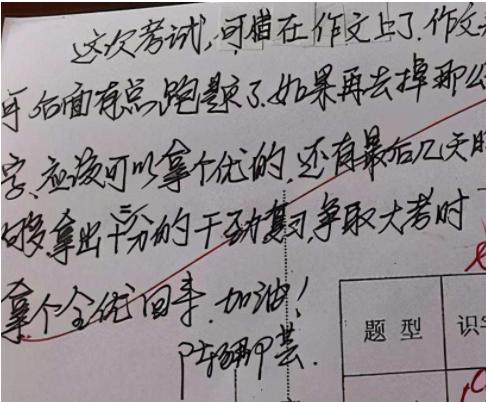 这次考试,可惜在作文上了.作文
后面有点跑题了.如果再去掉那
字、应该可以拿个优的,还有最后几天
够拿出十二分的干劲复习,争取大考时
拿个全优回来.加油!
题 型 识